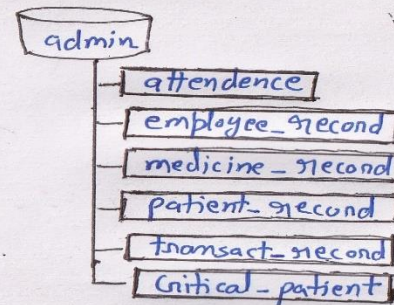 admin
attendence
employee_record
medicine_record
patient_record
transact_record
critical_patient